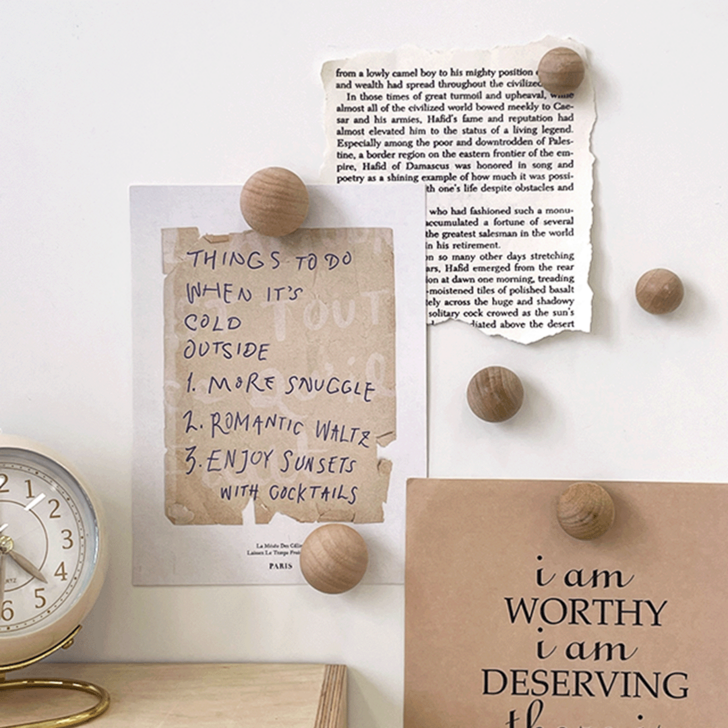 from a lowly camel boy to his mighty position
and wealth had spread throughout the civilized
In those times of great turmoil and upheaval, while
almost all of the civilized world bowed meekly to Cae-
sar and his armies, Hafid's fame and reputation had
almost elevated him to the status of a living legend.
Especially among the poor and downtrodden of Pales-
tine, a border region on the eastern frontier of the em-
pire, Hafid of Damascus was honored in song and
poetry as a shining example of how much it was possi-
th one's life despite obstacles and
who had fashioned such a monu-
accumulated a fortune of several
the greatest salesman in the world
in his retirement.
so many other days stretching
ars, Hafid emerged from the rear
ion at dawn one morning, treading
-moistened tiles of polished basalt
tely across the huge and shadowy
solitary cock crowed as the sun's
diated above the desert
THINGS TO DO
WHEN IT'S
COLD
OUTSIDE
1. MORE SNUGGLE
2. ROMANTIC WALTZ
3. ENJOY SUNSETS
WITH COCKTAILS
TOUT
PARIS
2 1
2
3
4
5
6
QUARTZ
i am
WORTHY
i am
DESERVING